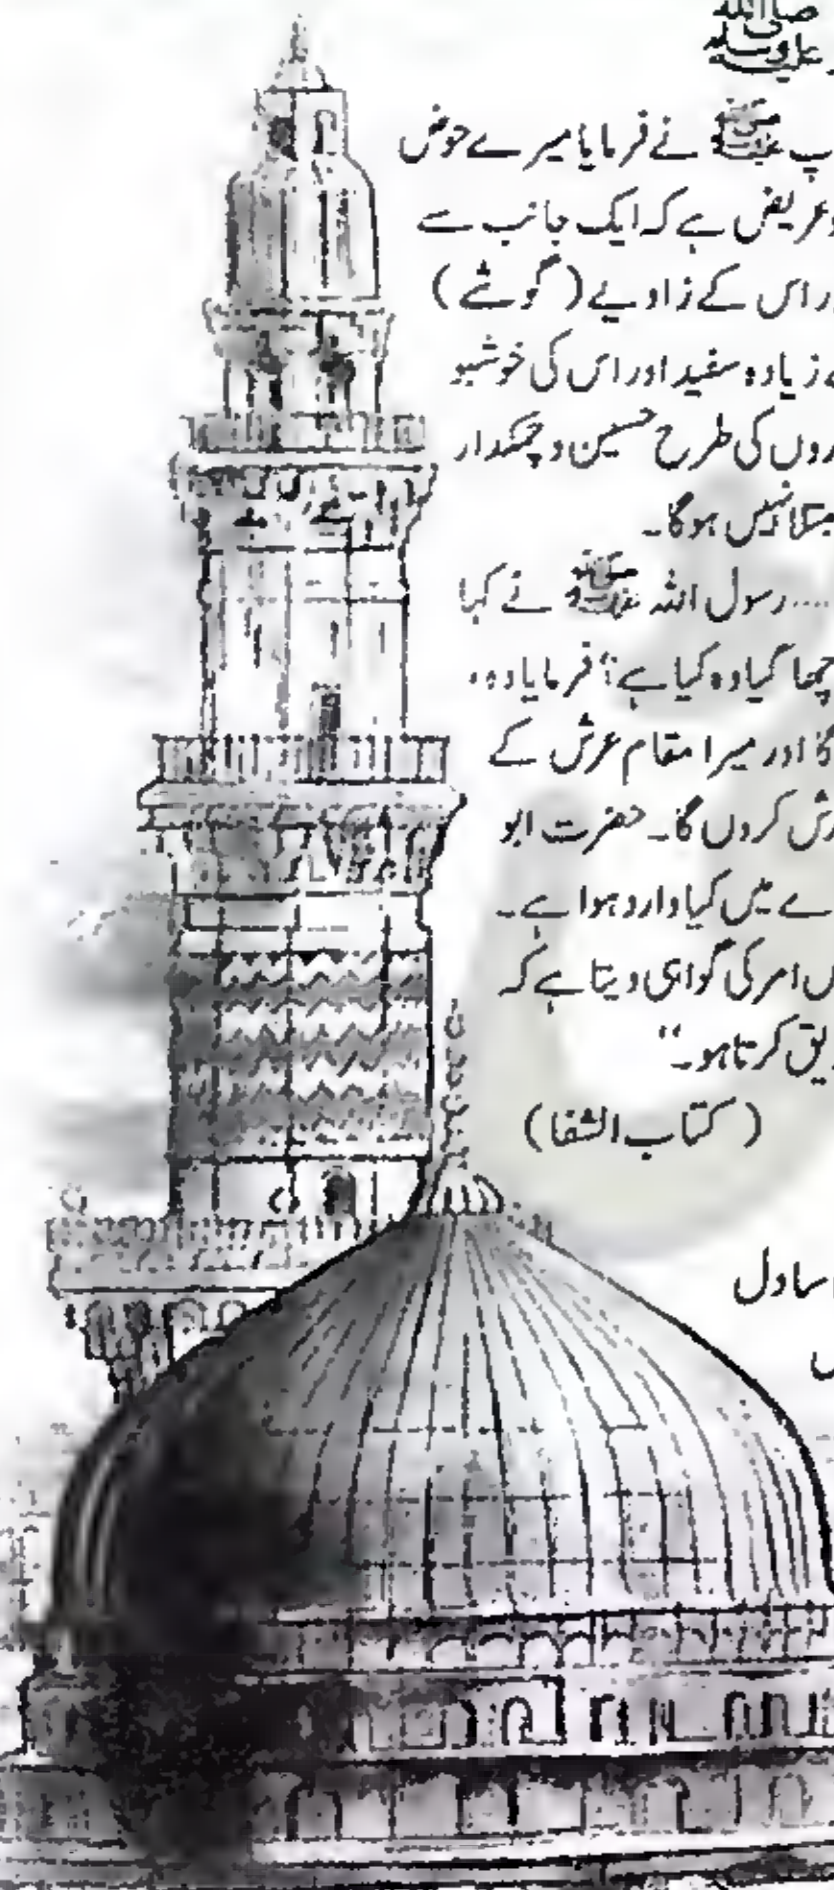 صلی اللہ علیہ وسلم
پ ﷺ نے فرمایا میرے حوض
وعریض ہے کہ ایک جانب سے
ر اس کے زاویے (گوشے)
زیادہ سفید اور اس کی خوشبو
روں کی طرح حسین و چمکدار
مبتلا نہیں ہوگا۔
....رسول اللہ ﷺ نے کہا
چھا گیا وہ کیا ہے؟ فرمایا وہ،
گا اور میرا مقام عرش کے
رش کروں گا۔ حضرت ابو
ے میں کیا وارد ہوا ہے۔
س امر کی گواہی دیتا ہے کہ
یق کرتا ہو۔“
(کتاب الشفا)
سا دل